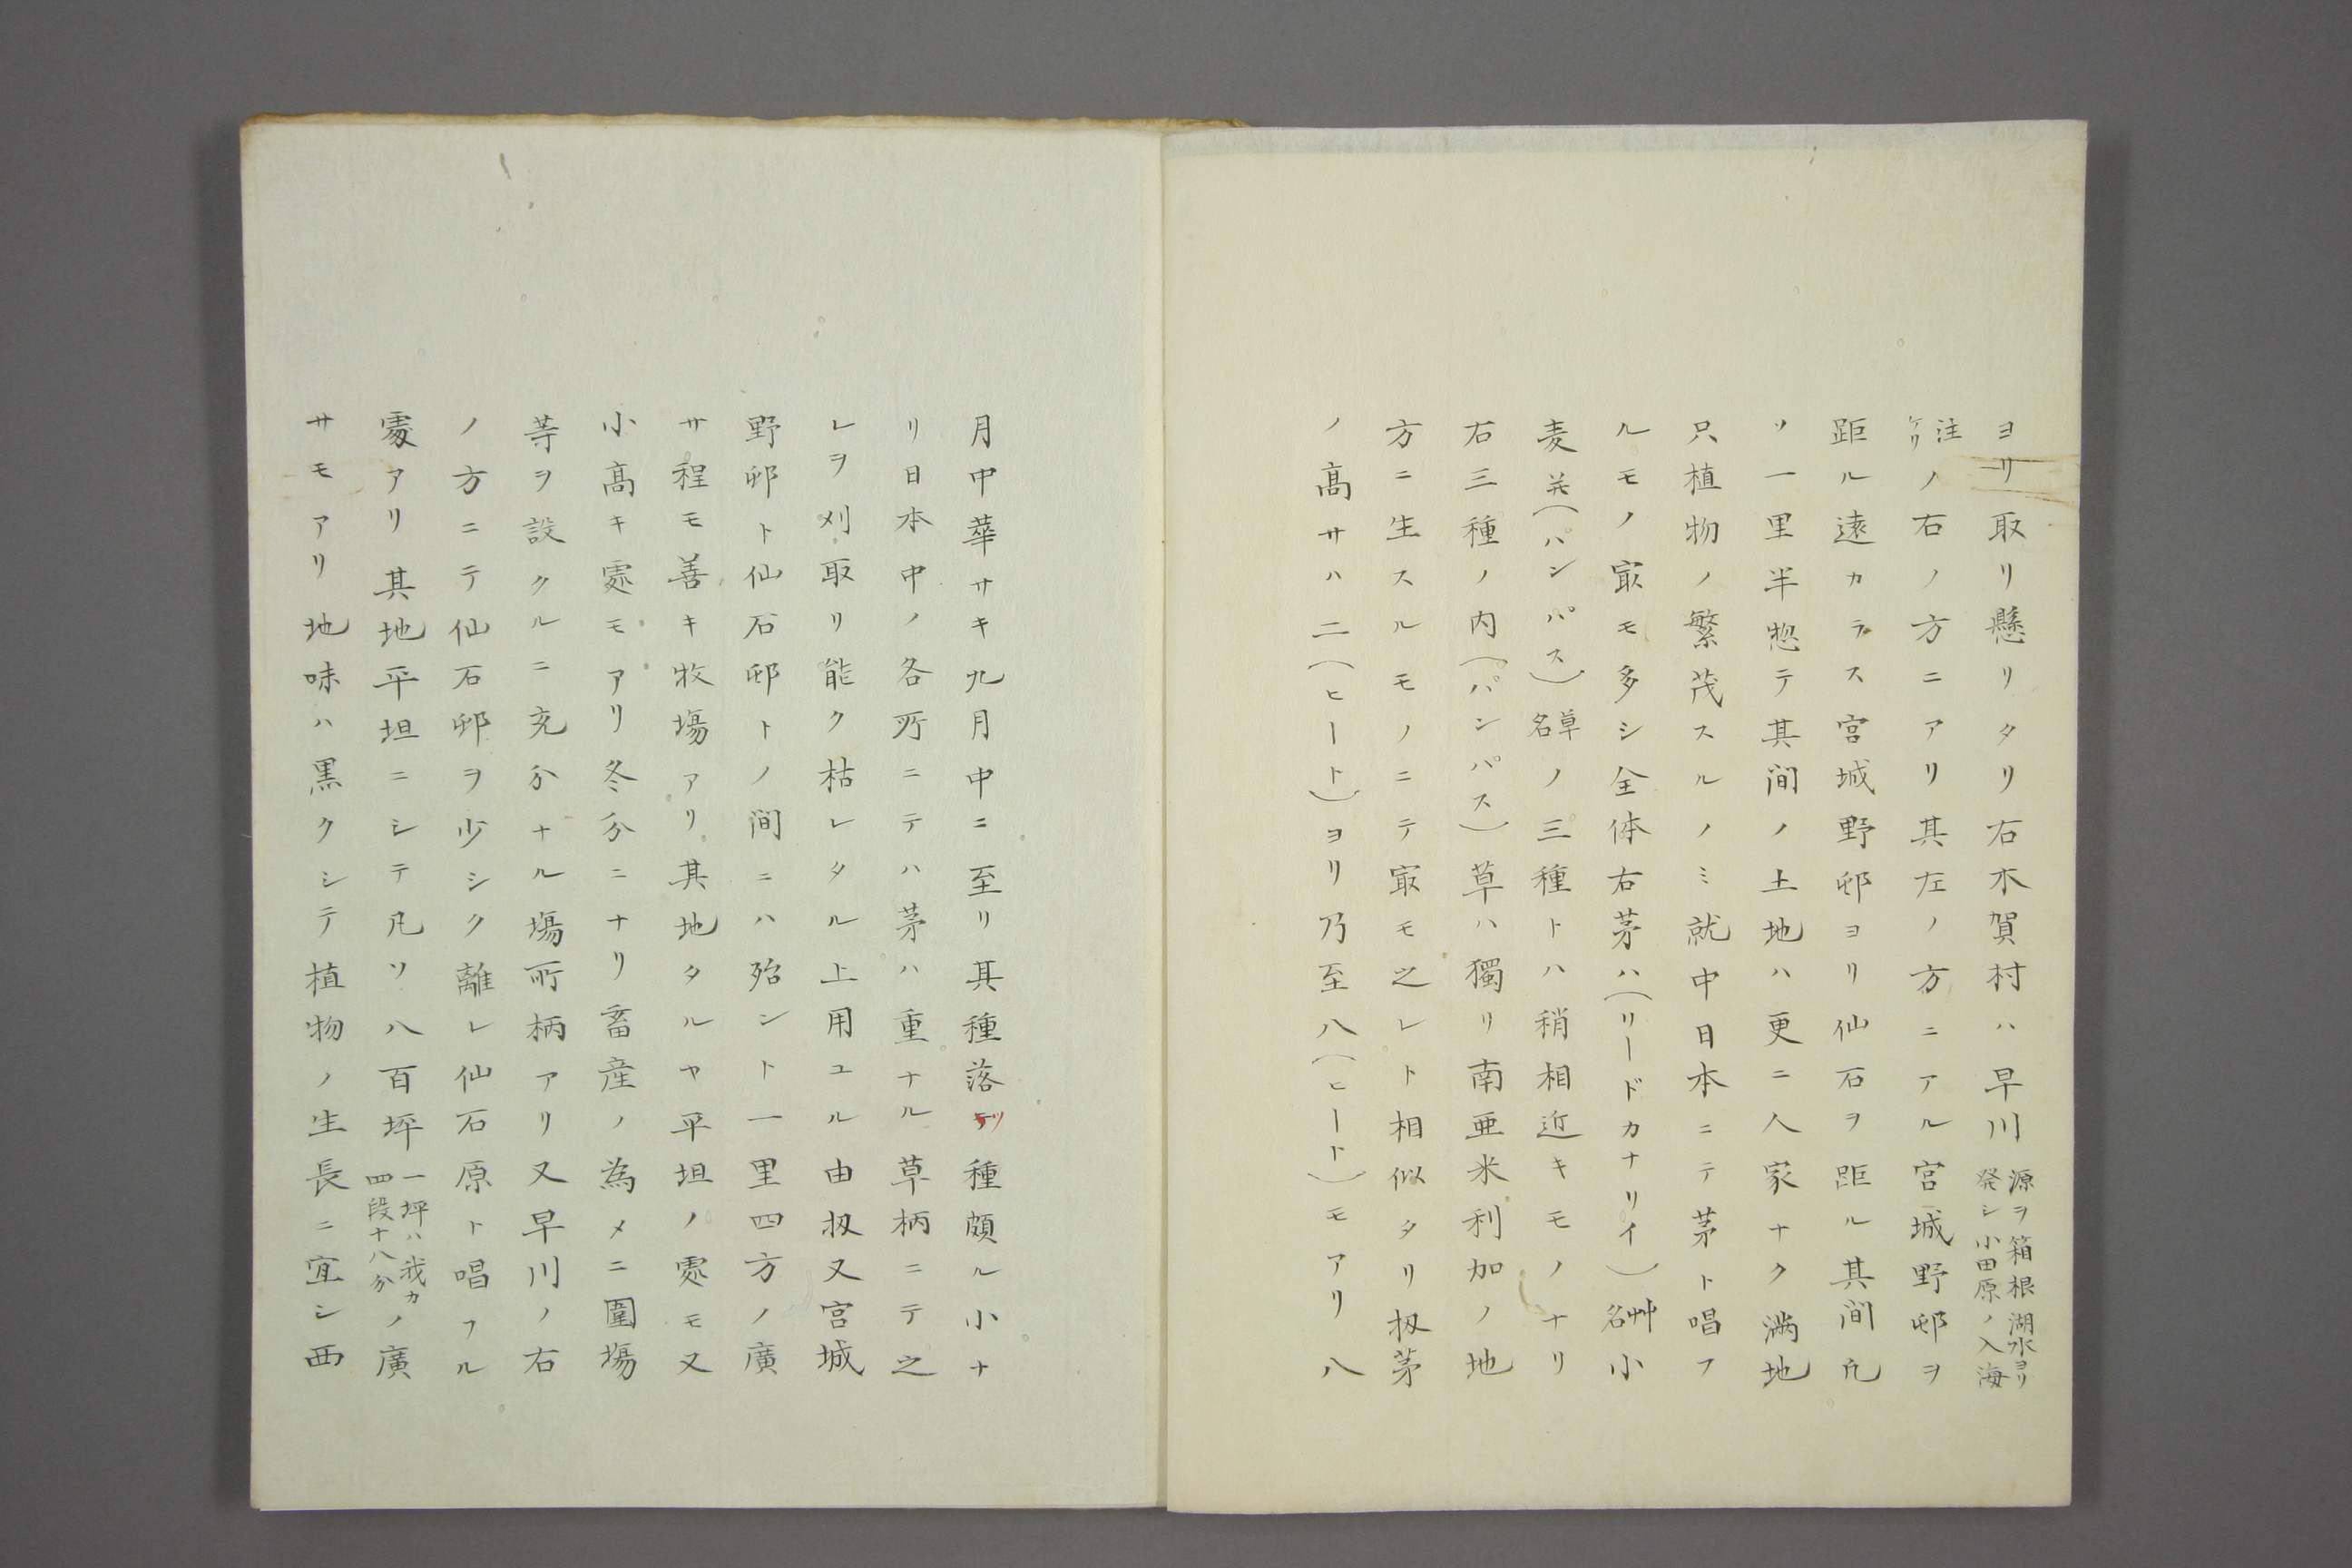 ヨリ取リ懸リタリ石木賀村ハ早川源ヲ箱根湖水ヨリ発シ小田原ノ入海
注ケリノ右ノ方ニアリ其左ノ方ニアル宮城野邨ヲ
距ル遠カラス宮城野邨ヨリ仙石ヲ距ル其間凢
ソ一里半惣テ其間ノ土地ハ更ニ人家ナク満地
只植物ノ繁茂スルノミ就中日本ニテ茅ト唱フ
ルモノ㝡モ多シ全体右茅ハ(リードカナリイ)艸名小
麦并(パンパス)草名ノ三種トハ稍相近キモノナリ
右三種ノ内(パンパス)草ハ獨リ南亜米利加ノ地
方ニ生スルモノニテ㝡モ之レト相似タリ扨茅
ノ髙サハ二(ヒート)ヨリ乃至八(ヒート)モアリ八
月中華サキ九月中ニ至リ其種落ツ種頗ル小ナ
リ日本中ノ各所ニテハ茅ハ重ナル草柄ニテ之
レヲ刈取リ能ク枯レタル上用ユル由扨又宮城
野邨ト仙石邨トノ間ニハ殆ント一里四方ノ廣
サ程モ善キ牧塲アリ其地タルヤ平坦ノ處モ又
小髙キ處モアリ冬分ニナリ畜産ノ為メニ圍塲
等ヲ設クルニ充分ナル塲所柄アリ又早川ノ右
ノ方ニテ仙石邨ヲ少シク離レ仙石原ト唱フル
處アリ其地平坦ニシテ凡ソ八百坪一坪ハ我カ四段十八分ノ廣
サモアリ地味ハ黒クシテ植物ノ生長ニ宜シ西